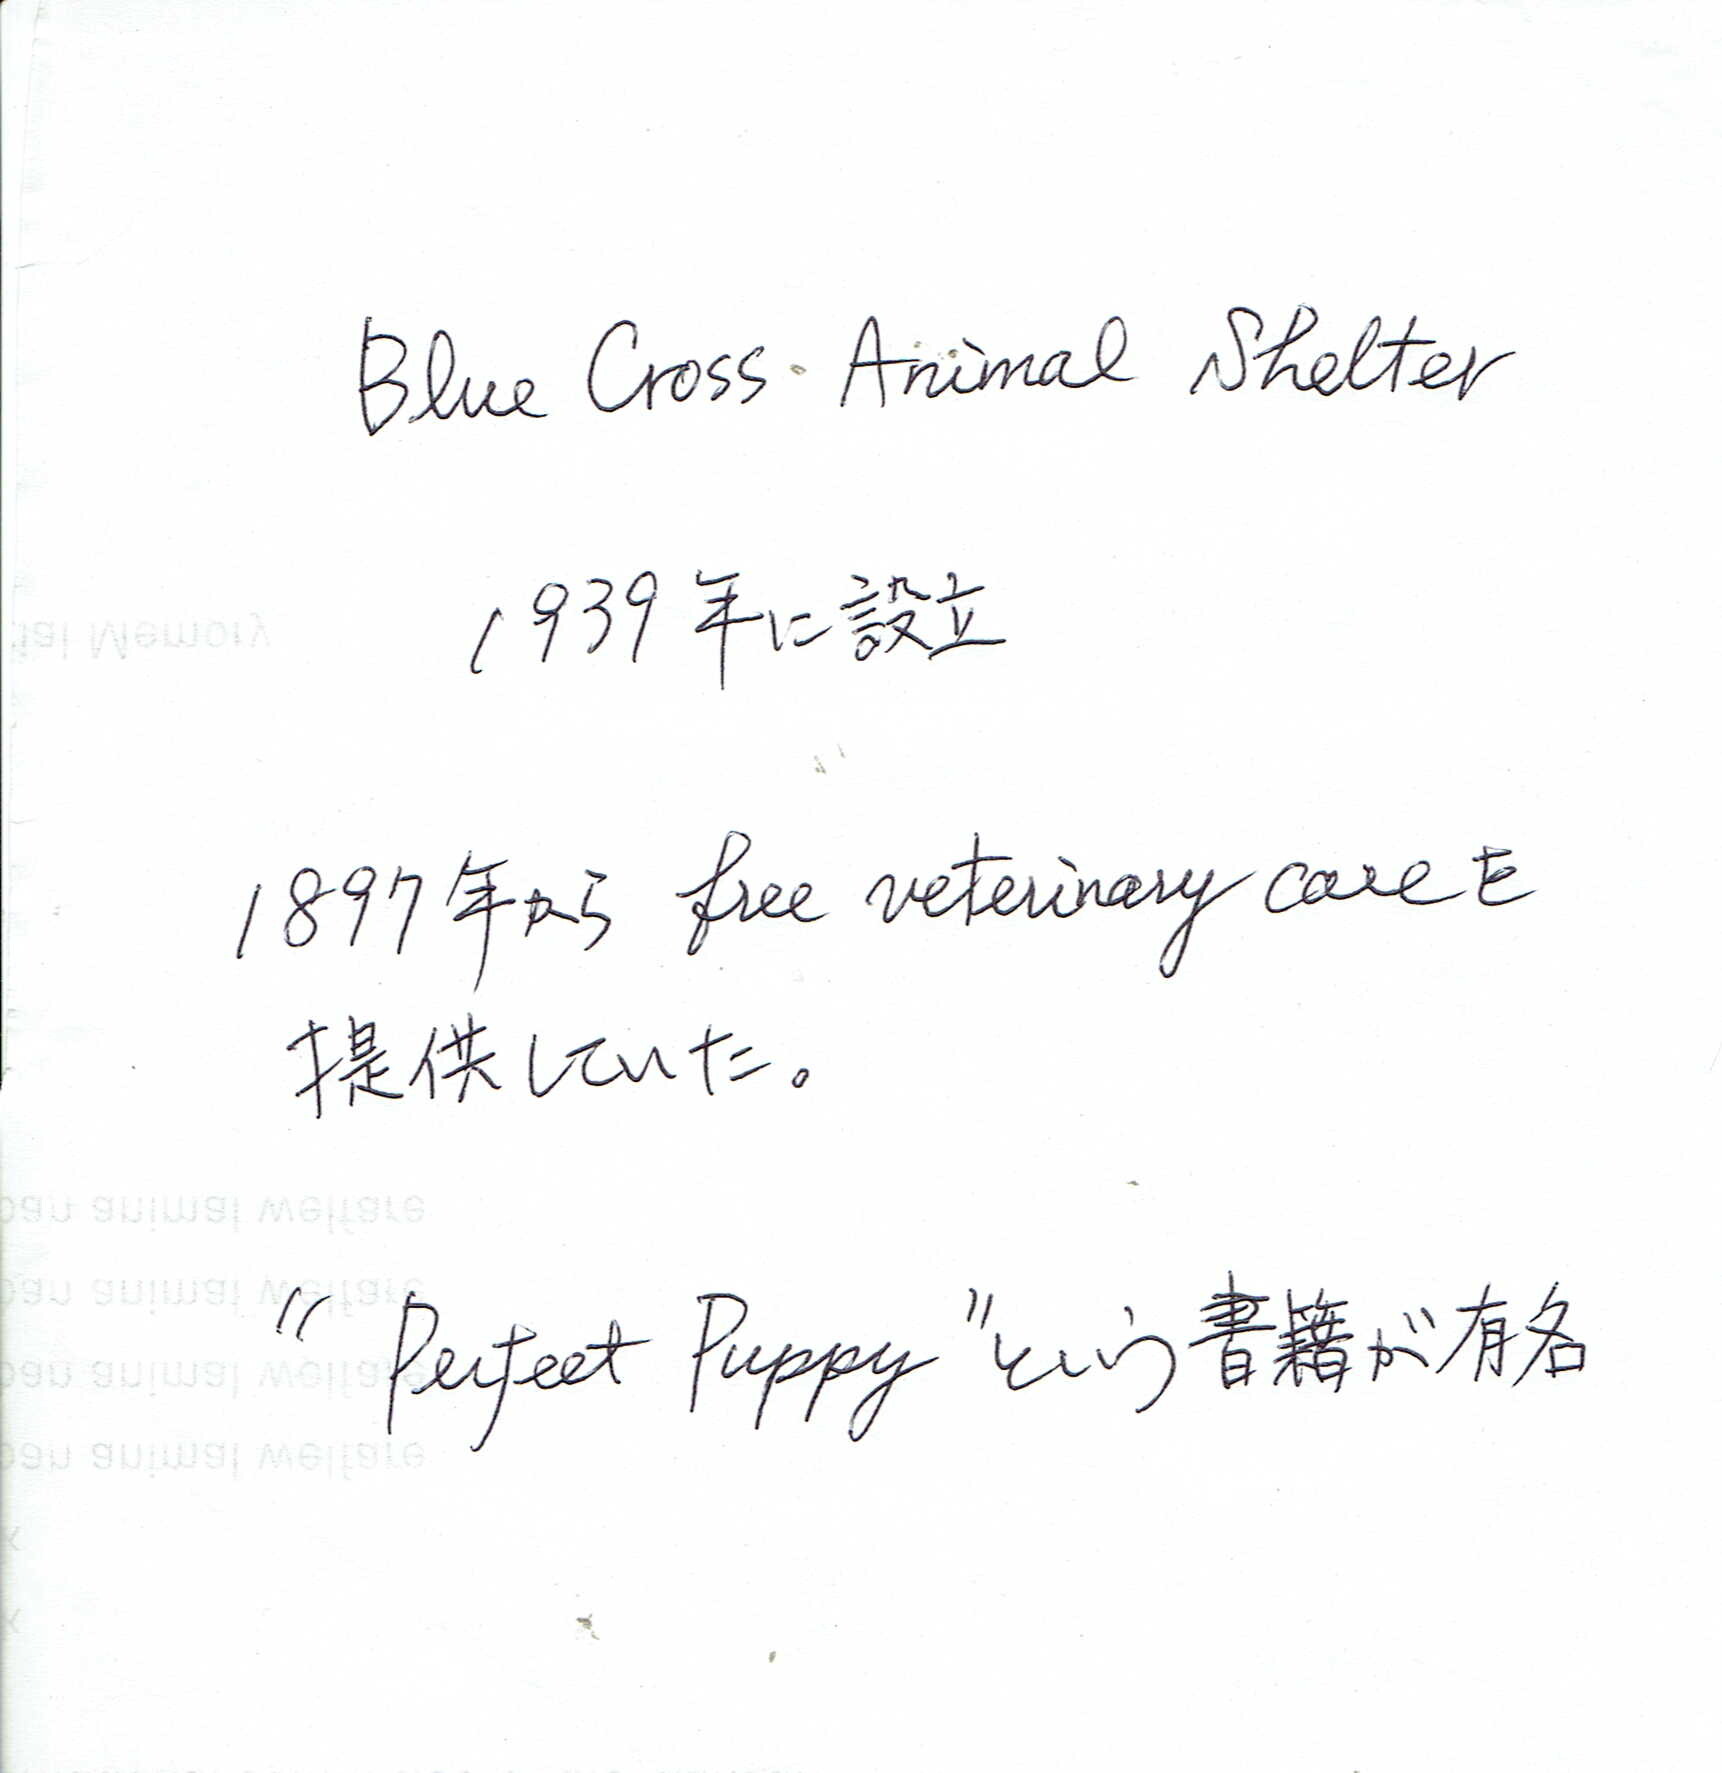 Blue Cross Animal Shelter
1939年に設立
1897年から free veterinary careを
提供していた。
"Perfect Puppy"という書籍が有名